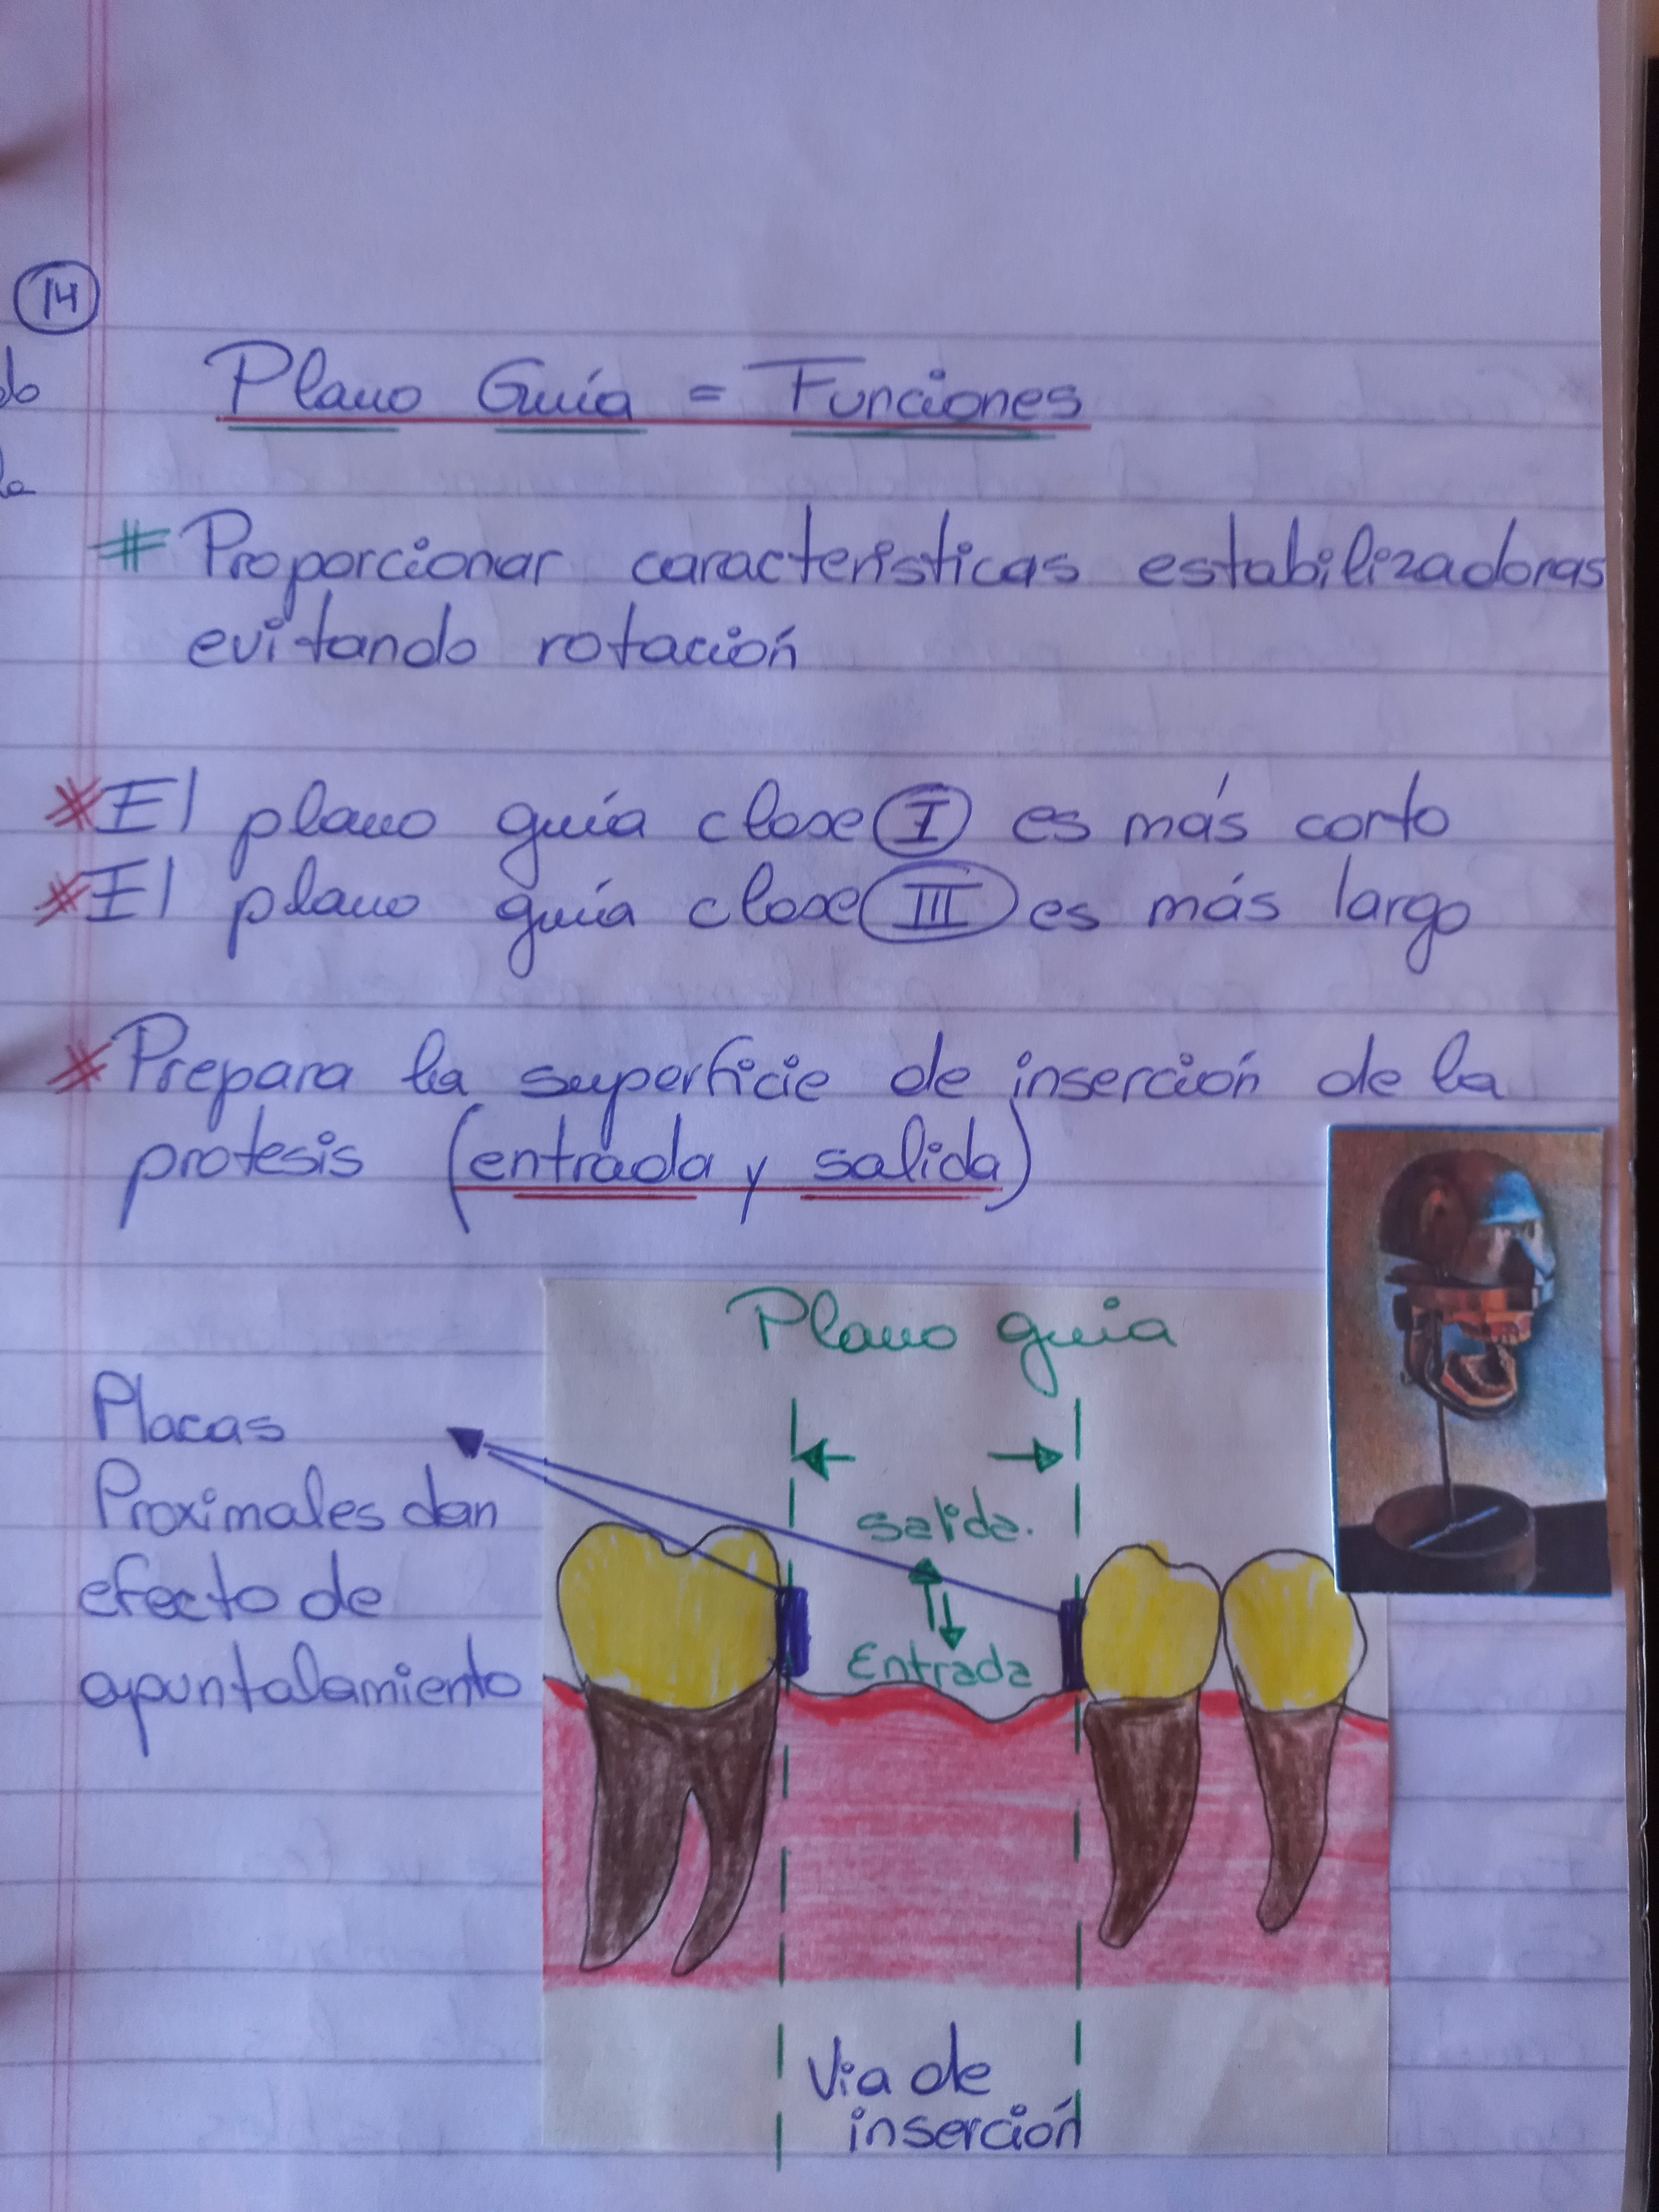 14
do
la
Plano Guía = Funciones
# Proporcionar características estabilizadoras
evitando rotación
* El plano guía clase I es más corto
* El plano guía clase III es más largo
* Prepara la superficie de inserción de la
protesis (entrada y salida)
Plano guia
Placas
Proximales dan
efecto de
apuntalamiento
Salida.
Entrada
Via de
inserción